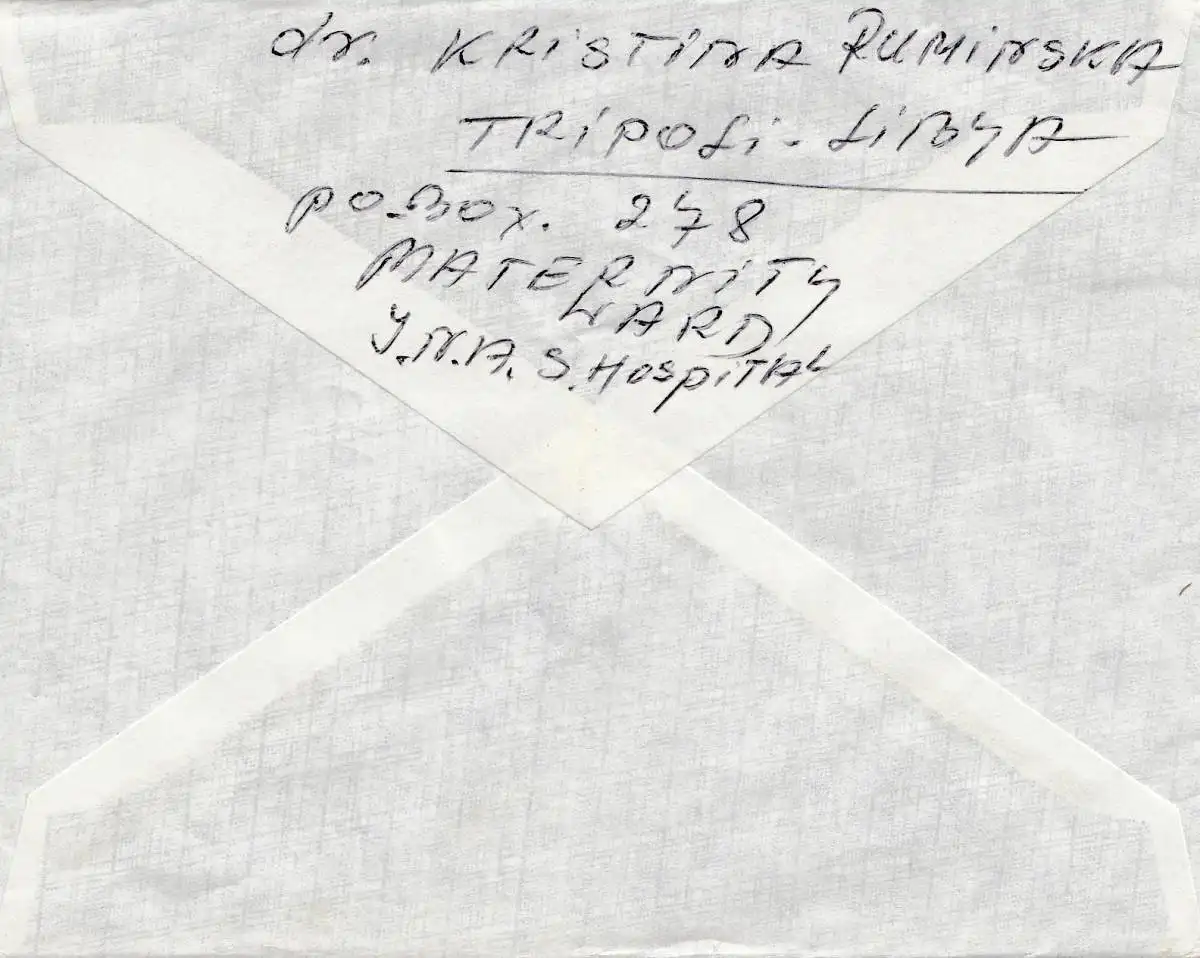 dr. KRISTINA RUMINSKA
TRIPOLI - LIBYA
PO-BOX. 278
MATERNITY
WARD
Y.N.A.S. HOSPITAL